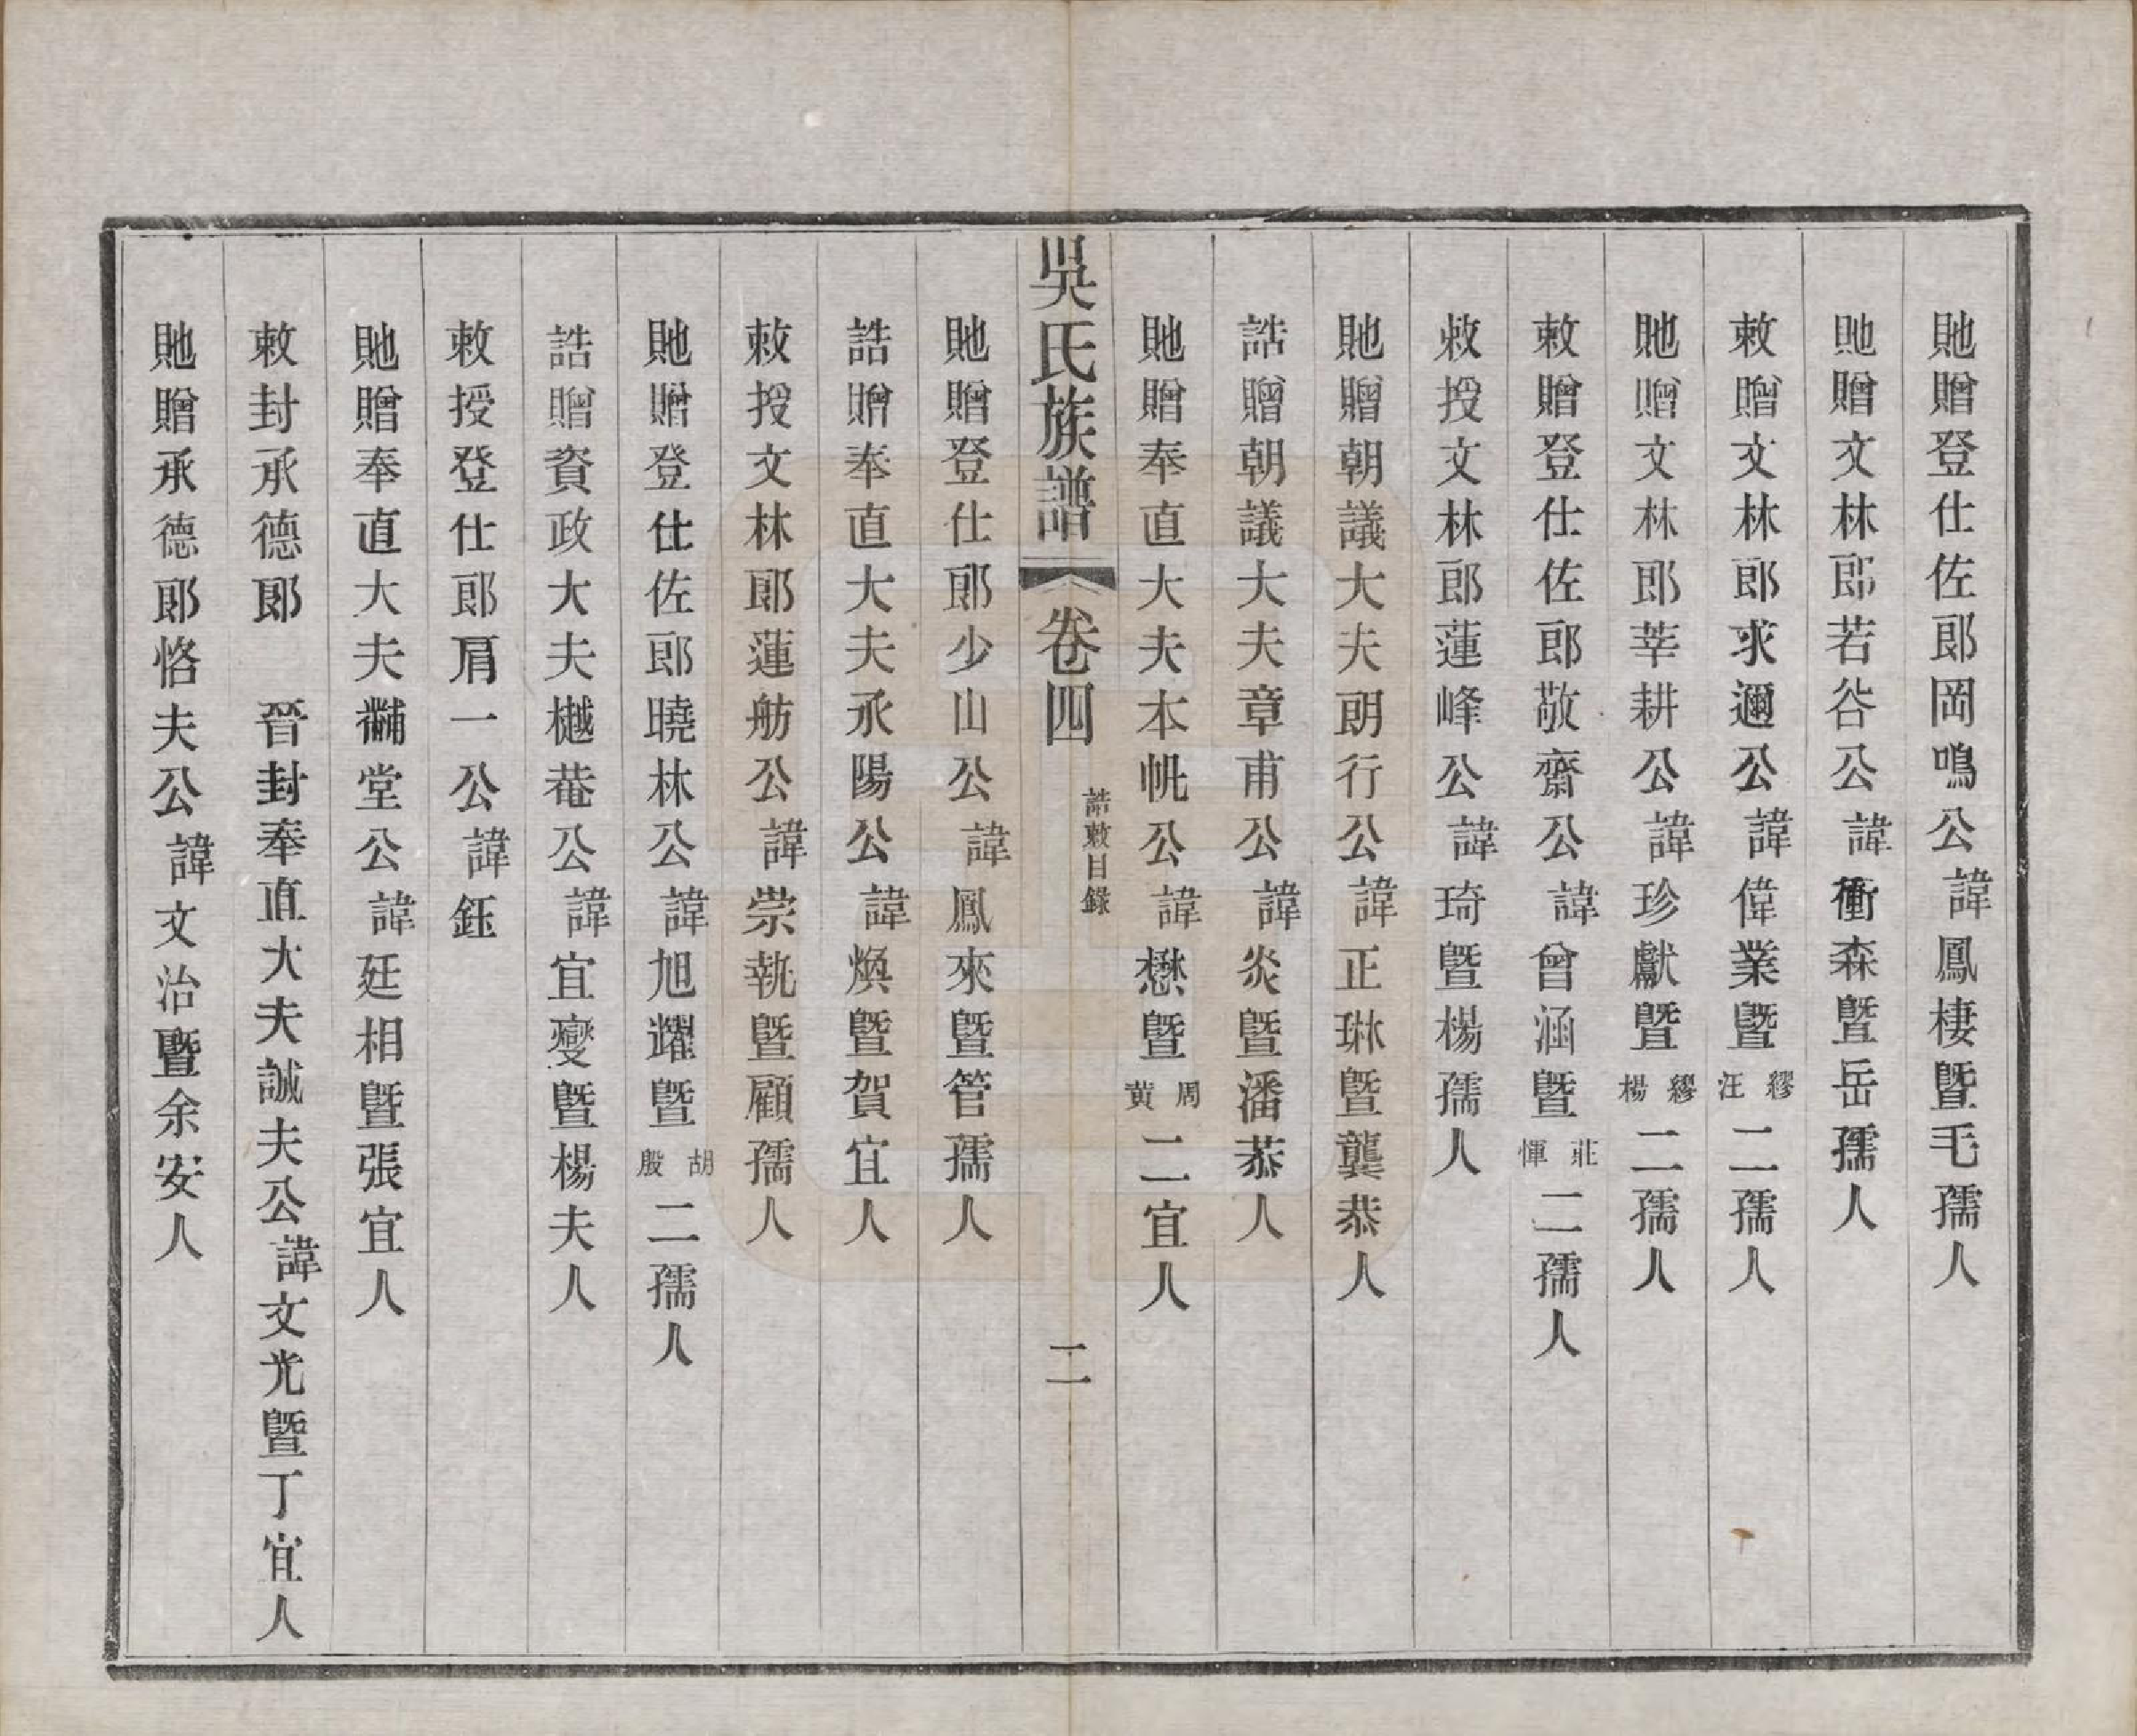 貤贈登仕佐郎岡鳴公諱鳳棲暨毛孺人
貤贈文林郎若谷公諱衝森暨岳孺人
敕贈文林郎求邇公諱偉業暨繆汪二孺人
貤贈文林郎莘耕公諱珍獻暨繆楊二孺人
敕贈登仕佐郎敬齋公諱曾涵暨莊惲二孺人
敕授文林郎蓮峰公諱琦暨楊孺人
貤贈朝議大夫朗行公諱正琳暨龔恭人
誥贈朝議大夫章甫公諱炎暨潘恭人
貤贈奉直大夫本帆公諱懋暨周黄二宜人
吳氏族譜 卷四 誥敕目錄 二
貤贈登仕郎少山公諱鳳來暨管孺人
誥贈奉直大夫承陽公諱煥暨賀宜人
敕授文林郎蓮舫公諱崇執暨顧孺人
貤贈登仕佐郎曉林公諱旭耀暨胡殷二孺人
誥贈資政大夫樾菴公諱宜燮暨楊夫人
敕授登仕郎肩一公諱鈺
貤贈奉直大夫黼堂公諱廷相暨張宜人
敕封承德郎 晉封奉直大夫誠夫公諱文光暨丁宜人
貤贈承德郎恪夫公諱文治暨余安人